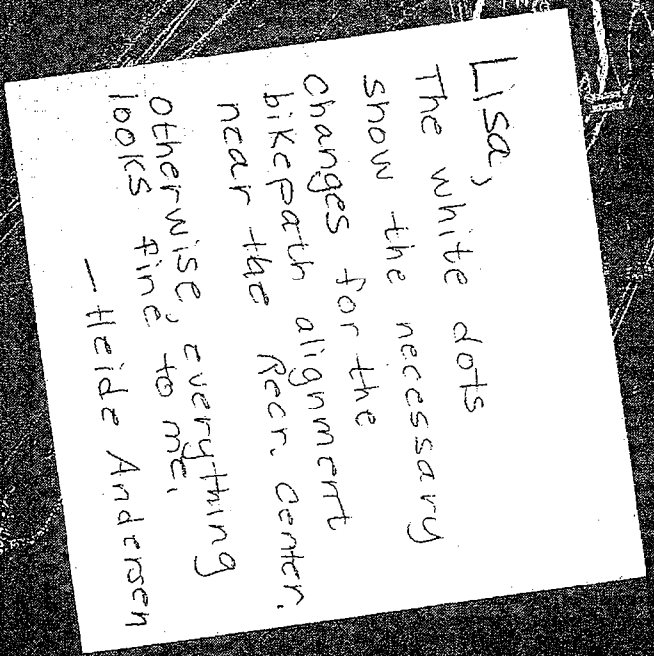 Lisa,
The white dots
show the necessary
changes for the
bikepath alignment
near the Recr. Center.
otherwise, everything
looks fine, to me.
— Heide Andersen